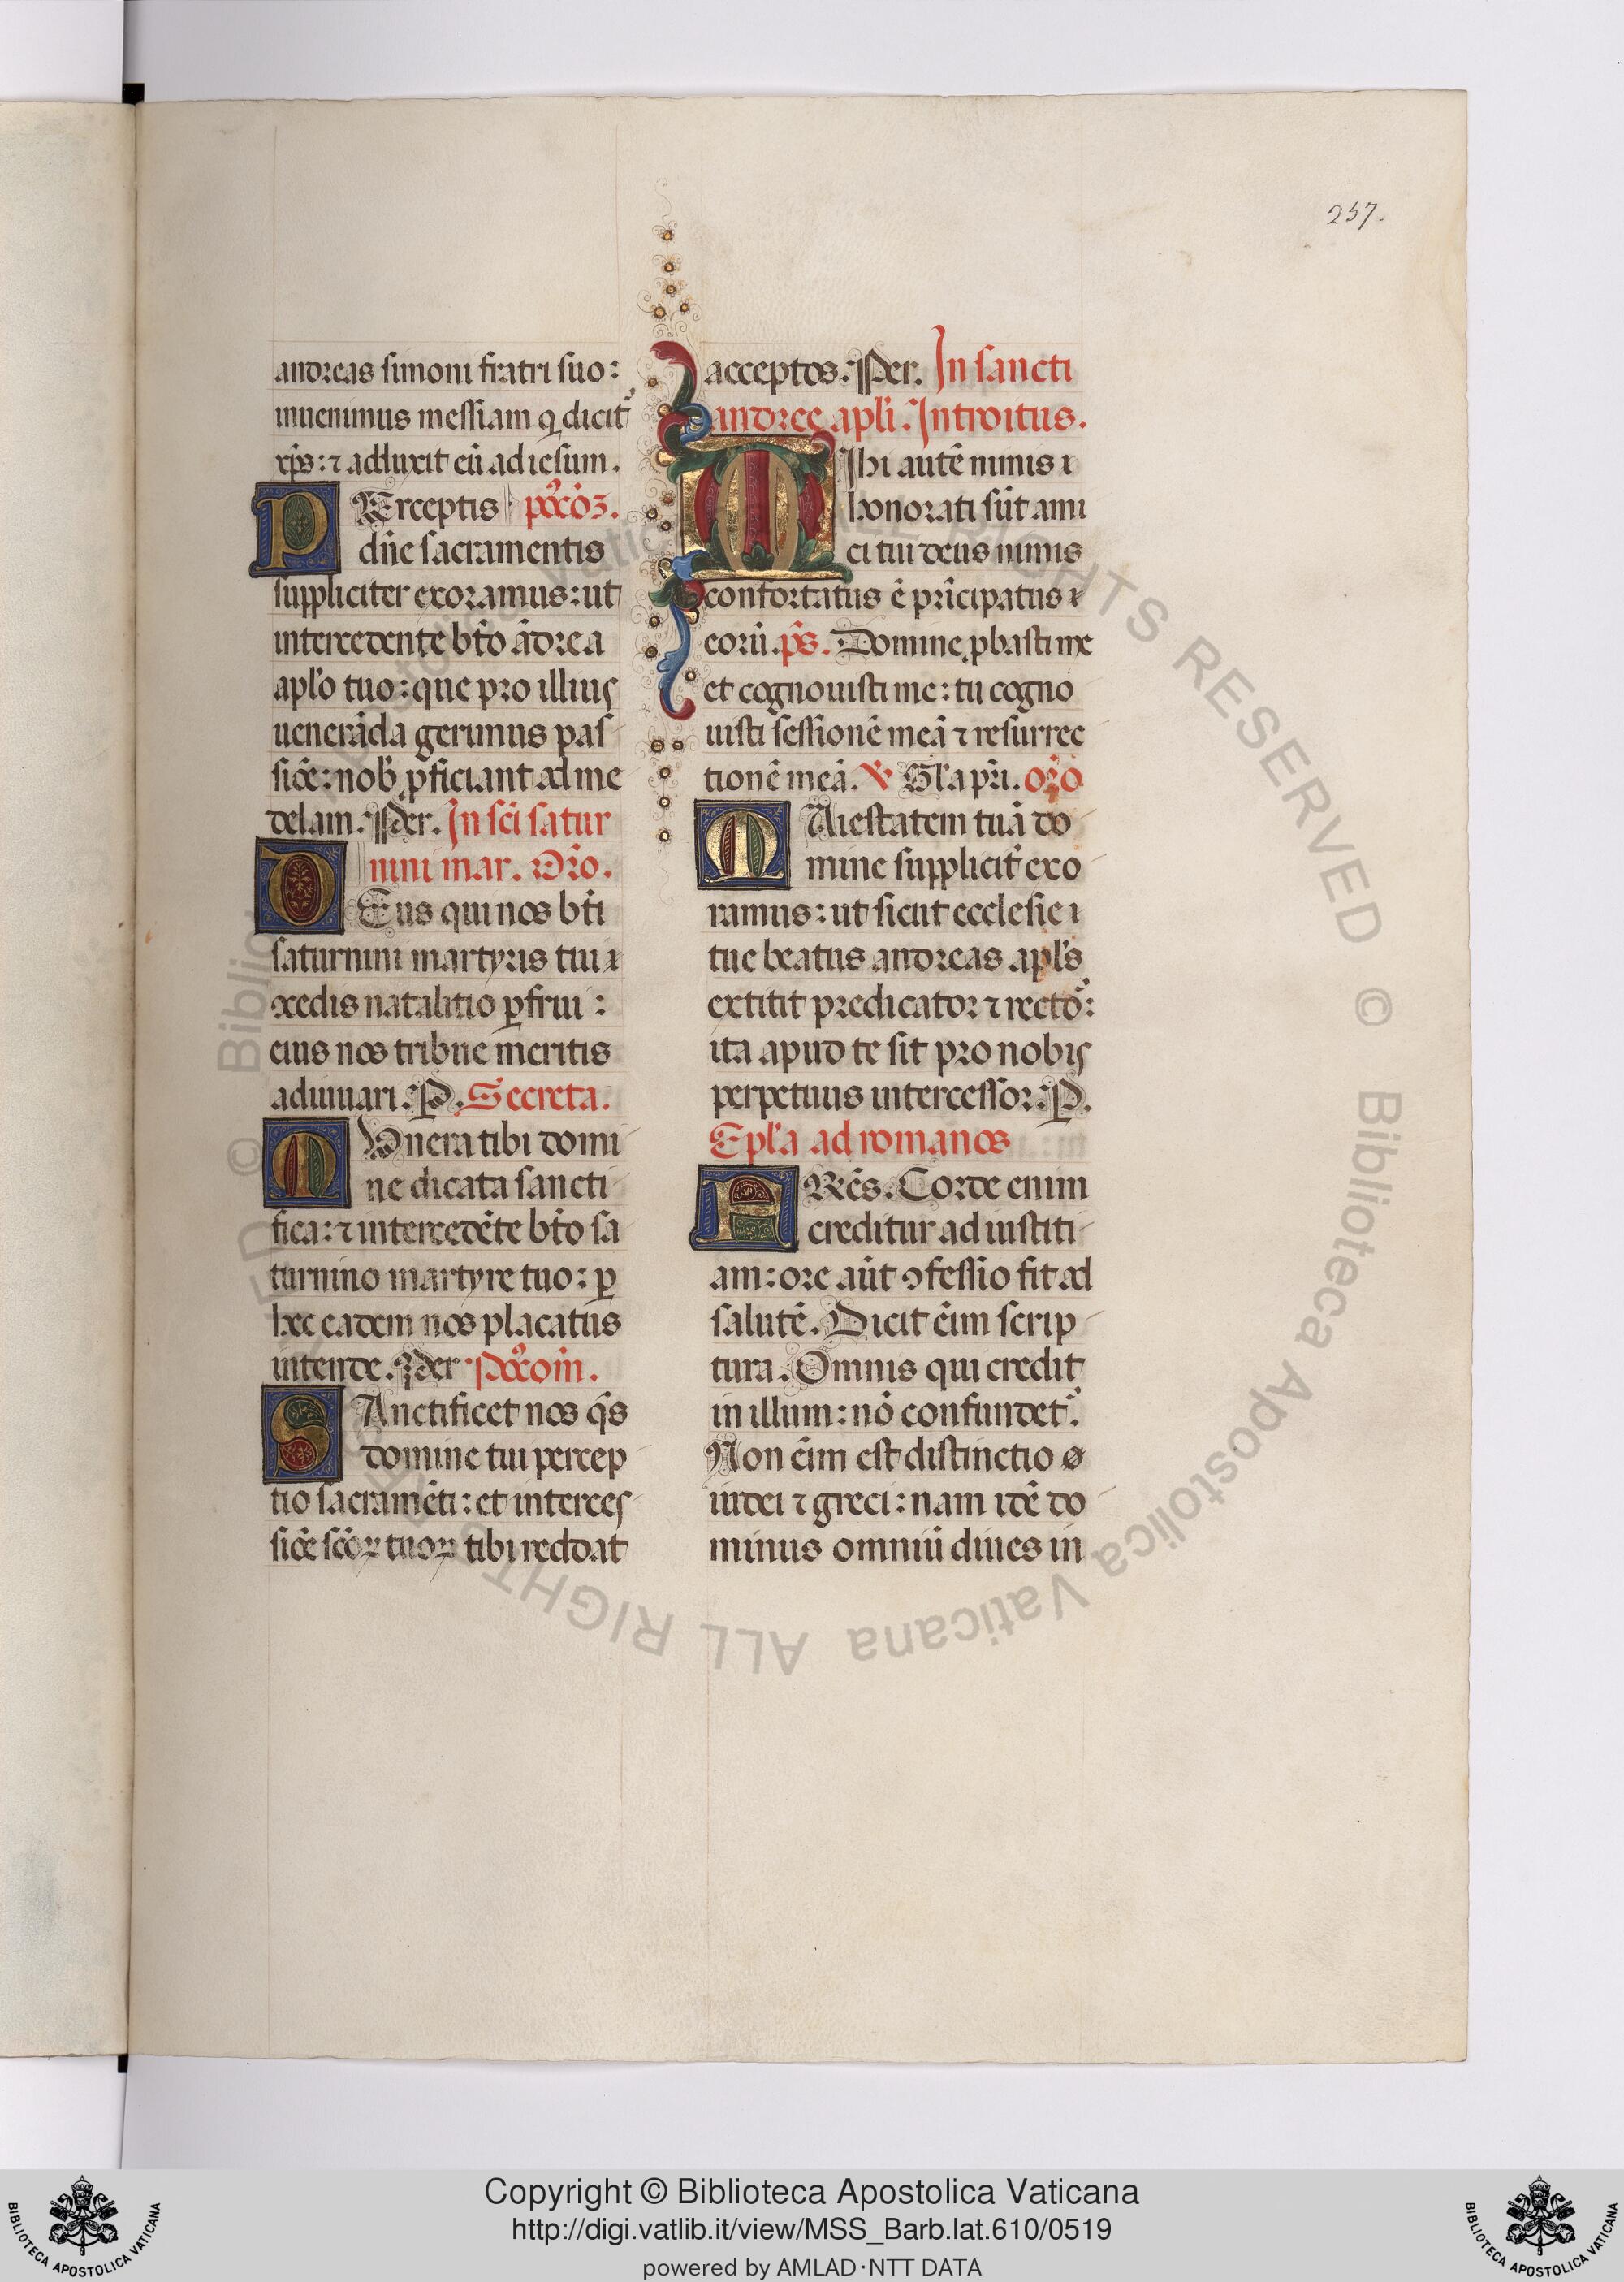 257.
andreas simoni fratri suo:
inuenimus messiam q̄ dicit᷑
xp̄s: ⁊ adduxit eū ad iesum.
PErceptis po᷑cōʒ.
dn̄e sacramentis
suppliciter exoramus: ut
intercedente bt̄o ādrea
apl'o tuo: que pro illius
uenerāda gerimus pas
siōe: nob̄ ꝓficiant ad me
delam. Per. In sc̄i satur
nini mar. Or̄o.
DEus qui nos bt̄i
saturnini martyris tui
cōcedis natalitio ꝑfrui:
eius nos tribue meritis
adiuuari. P. Secreta.
MUnera tibi domi
ne dicata sancti
fica: ⁊ intercedēte bt̄o sa
turnino martyre tuo: ꝑ
hec eadem nos placatus
intende. Per Po᷑com̄.
SAnctificet nos q̄s
domine tui percep
tio sacramēti: et interces
siōe sc̄oꝝ tuoꝝ tibi reddat
acceptos. Per. In sancti
andree apl'i. Introitus.
MIhi autē nimis
honorati sūt ami
ci tui deus nimis
confortatus ē prīcipatus
eorū. p̄s. Domine ꝓbasti me
et cognouisti me: tu cogno
uisti sessionē meā ⁊ resurrec
tionē meā. V Gl'a pr̄i. or̄o
MAiestatem tuā do
mine supplicit᷑ exo
ramus: ut sicut ecclesie
tue beatus andreas apl's
extitit predicator ⁊ recto᷑:
ita apud te sit pro nobis
perpetuus intercessor. P.
Epl'a ad romanos
FRēs. Corde enim
creditur ad iustiti
am: ore aūt ꝯfessio fit ad
salutē. Dicit ēim scrip
tura. Omnis qui credit
in illum: nō confundet᷑.
Non ēim est distinctio ø
iudei ⁊ greci: nam idē do
minus omniū diues in
© Biblioteca Apostolica Vaticana ALL RIGHTS RESERVED
Copyright © Biblioteca Apostolica Vaticana
http://digi.vatlib.it/view/MSS_Barb.lat.610/0519
powered by AMLAD·NTT DATA
BIBLIOTECA APOSTOLICA VATICANA
BIBLIOTECA APOSTOLICA VATICANA